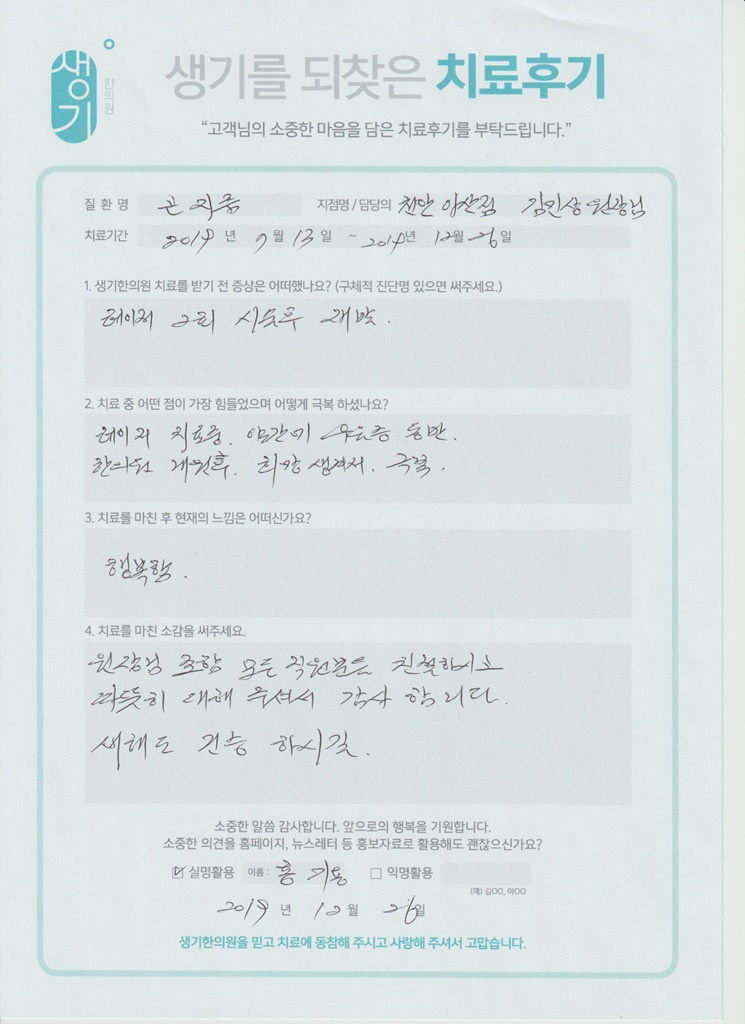 생기
한의원
생기를 되찾은 치료후기
“고객님의 소중한 마음을 담은 치료후기를 부탁드립니다.”
질환명 곤지름 지점명 / 담당의 천안아산점 김진상 원장님
치료기간 2019년 9월 13일 ~ 2019년 12월 26일
1. 생기한의원 치료를 받기 전 증상은 어떠했나요? (구체적 진단명 있으면 써주세요.)
레이저 2회 시술후 재발.
2. 치료 중 어떤 점이 가장 힘들었으며 어떻게 극복 하셨나요?
레이저 치료중. 약간에 우울증 동반.
한의원 내원후. 희망 생겨서. 극복.
3. 치료를 마친 후 현재의 느낌은 어떠신가요?
행복함.
4. 치료를 마친 소감을 써주세요.
원장님 포함 모든 직원분들 친절하시고
따뜻히 대해 주셔서 감사 합니다.
새해도 건승 하시길.
소중한 말씀 감사합니다. 앞으로의 행복을 기원합니다.
소중한 의견을 홈페이지, 뉴스레터 등 홍보자료로 활용해도 괜찮으신가요?
실명활용 이름 : 홍기용 익명활용
(예) 김OO, 이OO
2019년 12월 26일
생기한의원을 믿고 치료에 동참해 주시고 사랑해 주셔서 고맙습니다.